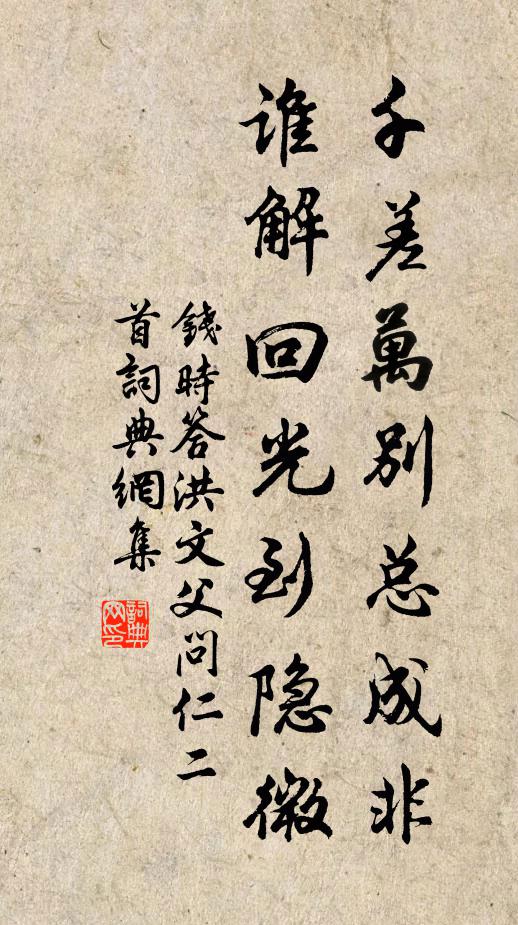 千差萬别总成非
谁解回光到隐微
錢時答洪文父問仁二
首詞典網集
詞典网印